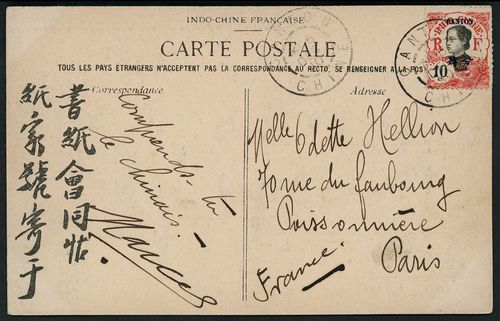 INDO-CHINE FRANÇAISE
CARTE POSTALE
TOUS LES PAYS ETRANGERS N'ACCEPTENT PAS LA CORRESPONDANCE AU RECTO, SE RENSEIGNER A LA POS
Correspondance
書紙會同帖
紙家號寄于
Comprends-tu
le chinois.
Marcel
Adresse
Melle Odette Hellion
70 rue du faubourg
Poissonnière
Paris
France.
CANTON
CHINE
CANTON
R F
10
CANTON
CHINE